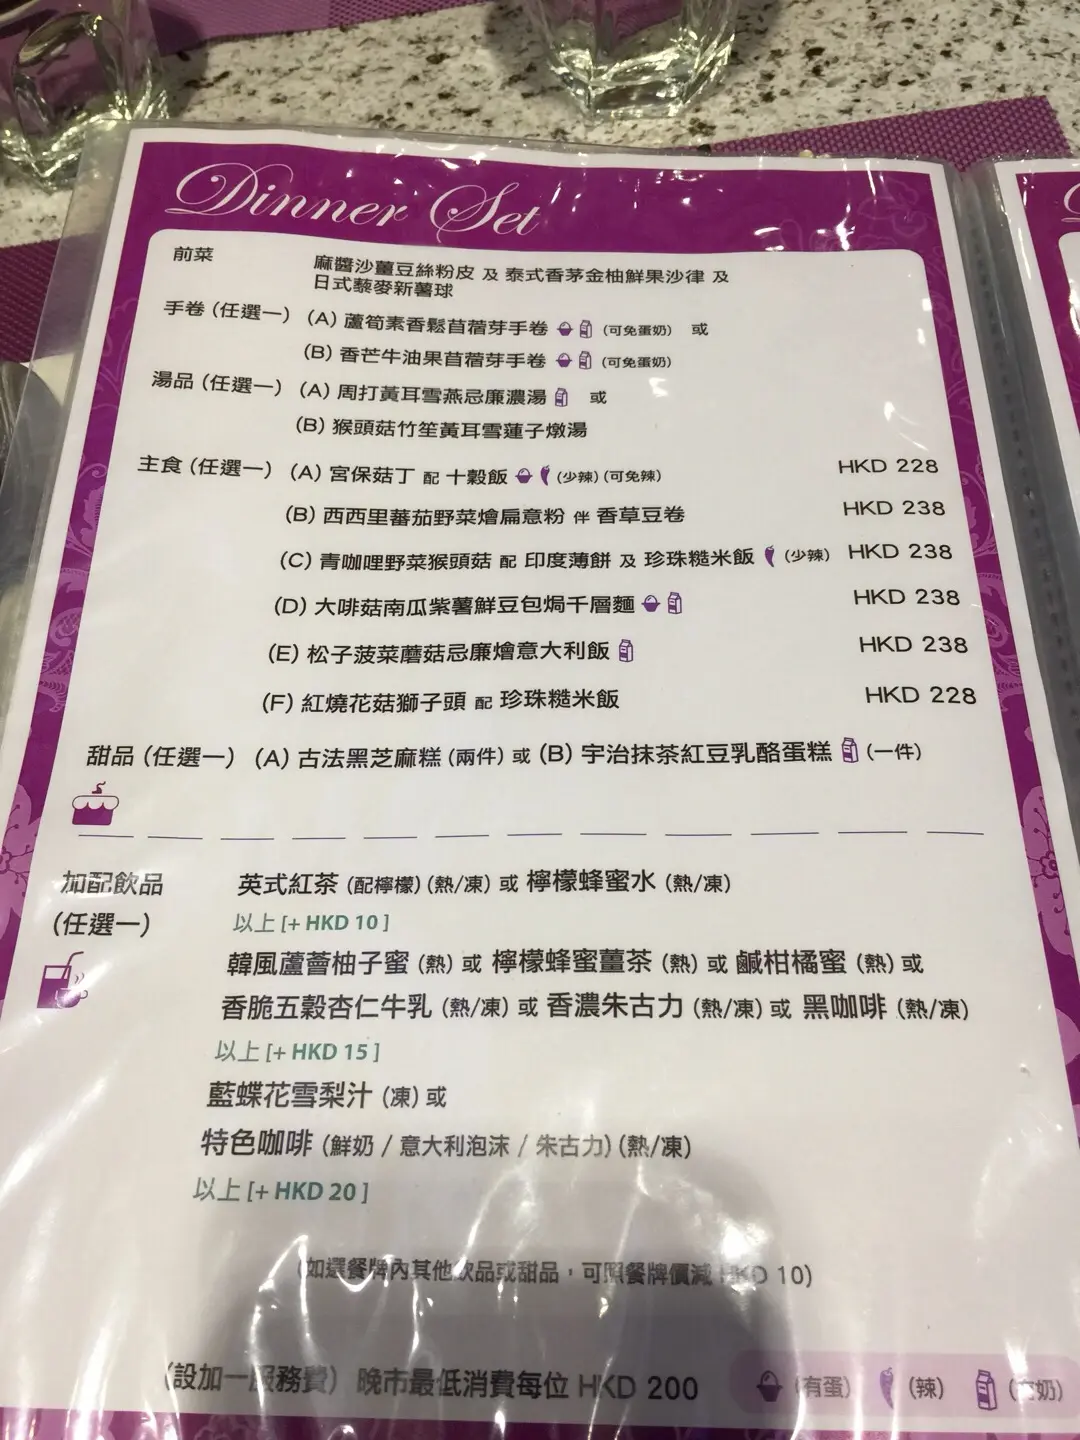 Dinner Set
前菜 麻醬沙薑豆絲粉皮 及 泰式香茅金柚鮮果沙律 及
日式藜麥新薯球
手卷 (任選一) (A) 蘆筍素香鬆苜蓿芽手卷 (可免蛋奶) 或
(B) 香芒牛油果苜蓿芽手卷 (可免蛋奶)
湯品 (任選一) (A) 周打黃耳雪燕忌廉濃湯 或
(B) 猴頭菇竹笙黃耳雪蓮子燉湯
主食 (任選一) (A) 宮保菇丁 配 十穀飯 (少辣) (可免辣) HKD 228
(B) 西西里蕃茄野菜燴扁意粉 伴 香草豆卷 HKD 238
(C) 青咖哩野菜猴頭菇 配 印度薄餅 及 珍珠糙米飯 (少辣) HKD 238
(D) 大啡菇南瓜紫薯鮮豆包焗千層麵 HKD 238
(E) 松子菠菜蘑菇忌廉燴意大利飯 HKD 238
(F) 紅燒花菇獅子頭 配 珍珠糙米飯 HKD 228
甜品 (任選一) (A) 古法黑芝麻糕 (兩件) 或 (B) 宇治抹茶紅豆乳酪蛋糕 (一件)
加配飲品 英式紅茶 (配檸檬) (熱/凍) 或 檸檬蜂蜜水 (熱/凍)
(任選一) 以上 [+ HKD 10 ]
韓風蘆薈柚子蜜 (熱) 或 檸檬蜂蜜薑茶 (熱) 或 鹹柑橘蜜 (熱) 或
香脆五穀杏仁牛乳 (熱/凍) 或 香濃朱古力 (熱/凍) 或 黑咖啡 (熱/凍)
以上 [+ HKD 15 ]
藍蝶花雪梨汁 (凍) 或
特色咖啡 (鮮奶 / 意大利泡沫 / 朱古力) (熱/凍)
以上 [+ HKD 20 ]
(如選餐牌內其他飲品或甜品，可照餐牌價減 HKD 10)
(設加一服務費) 晚市最低消費每位 HKD 200 (有蛋) (辣) (有奶)